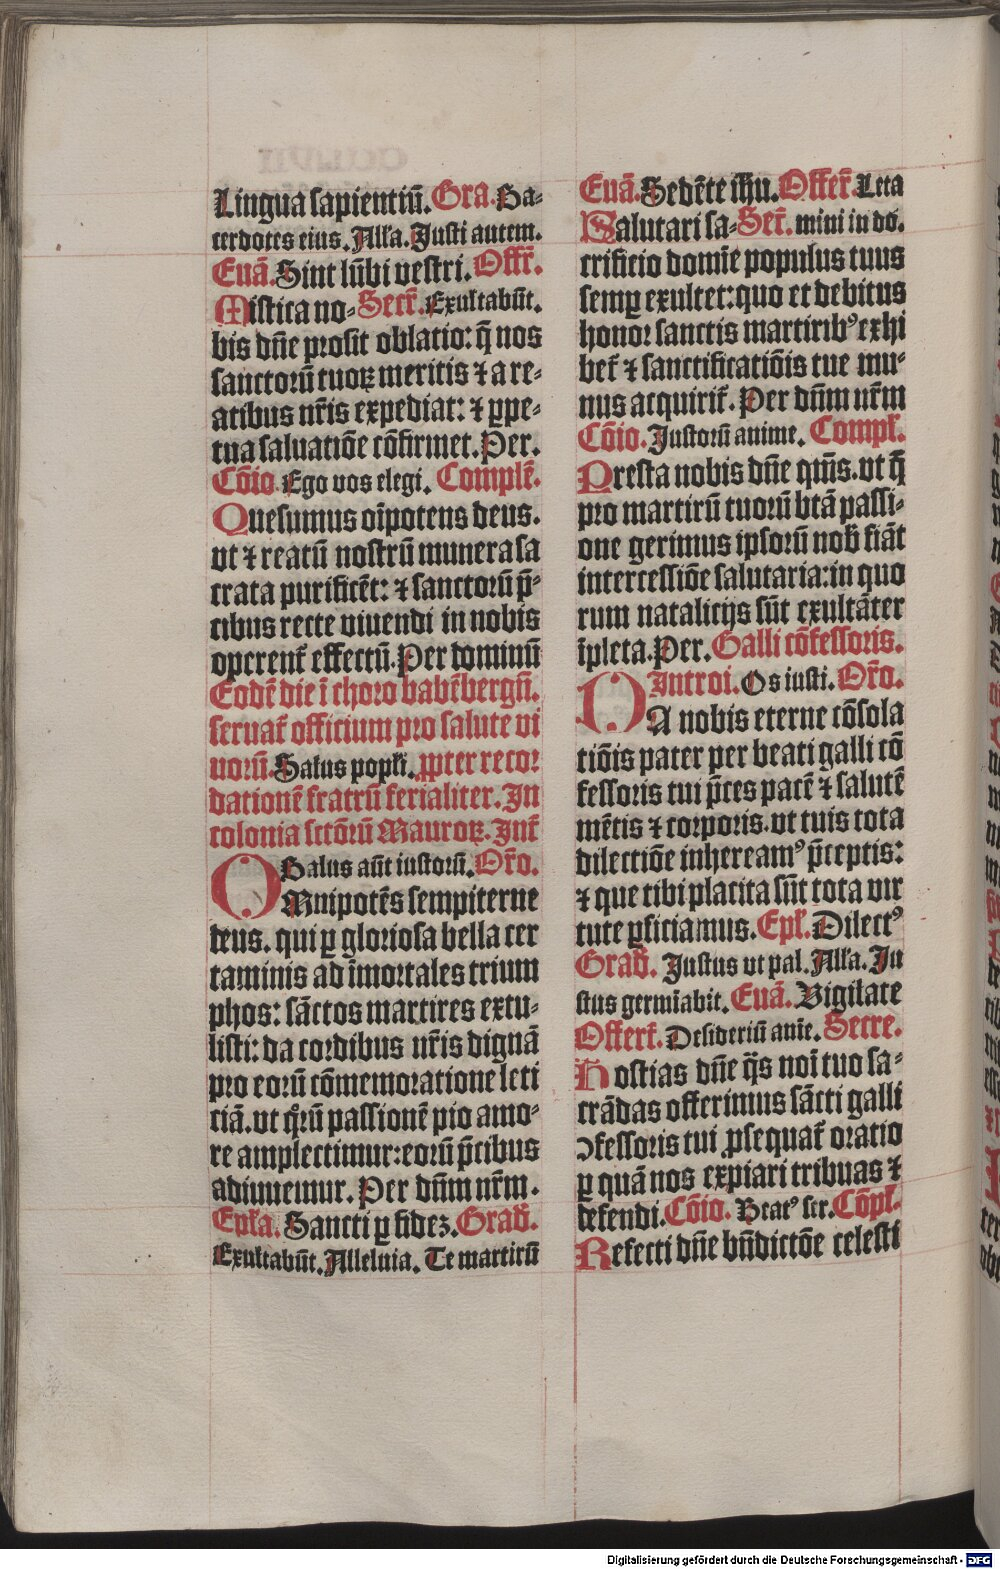 Lingua sapientiū. Gra. Sa-
cerdotes eius. Allˀa. Justi autem.
Euā. Sint lūbi vestri. Offr̄.
Mistica no- Secr̄. Exultabūt.
bis dn̄e prosit oblatio: q̄ nos
sanctorū tuoꝝ meritis ⁊ a re-
atibus nr̄is expediat: ⁊ ꝑpe-
tua saluatiōe cōfirmet. Per.
Cōio. Ego vos elegi. Complē.
Quesumus oīpotens deus.
vt ⁊ reatū nostrū munera sa
crata purificēt: ⁊ sanctorū p̄-
cibus recte viuendi in nobis
operent̄ effectū. Per dominū
Eodē die ī choro babēbergn̄.
seruat̄ officium pro salute vi
uorū. Salus popłi. ꝓpter recor
dationē fratrū ferialiter. In
colonia sctōrū Mauroꝝ. Int̄
Salus aūt iustorū. Or̄o.
OMnipotēs sempiterne
deus. qui ꝑ gloriosa bella cer
taminis ad īmortales trium
phos: sāctos martires extu-
listi: da cordibus nr̄is dignā
pro eorū cōmemoratione leti
ciā. vt q̄rū passionē pio amo-
re amplectimur: eorū p̄cibus
adiuuemur. Per dn̄m nr̄m.
Epłˀa. Sancti ꝑ fidez. Grad̄.
Exultabūt. Alleluia. Te martirū
Euā. Sedēte ih̄u. Offer̄. Leta
Salutari sa- Secr̄. mini in do.
crificio domīe populus tuus
semꝑ exultet: quo et debitus
honor sanctis martiribꝰ exhi
bet̄ ⁊ sanctificatiōis tue mu-
nus acquirit̄. Per dn̄m nr̄m
Cōio. Justorū anime. Compł.
Presta nobis dn̄e qūs. vt q̄
pro martirū tuorū btā passi-
one gerimus ipsorū nob̄ fiāt
intercessiōe salutaria: in quo
rum natalicijs sūt exultāter
īpleta. Per. Galli cōfessoris.
Introi. Os iusti. Or̄o.
DA nobis eterne cōsola
tiōis pater per beati galli cō
fessoris tui p̄ces pacē ⁊ salutē
mētis ⁊ corporis. vt tuis tota
dilectiōe inhereamꝰ p̄ceptis:
⁊ que tibi placita sūt tota vir
tute ꝑficiamus. Epł. Dilectꝰ
Grad̄. Justus vt pal. Allˀa. Ju
stus germīabit. Euā. Vigilate
Offert̄. Desideriū anīe. Secre.
Hostias dn̄e q̄s noī tuo sa-
crādas offerimus sācti galli
ↄfessoris tui ꝓsequat̄ oratio
ꝑ quā nos expiari tribuas ⁊
defendi. Cōio. Beatꝰ ser. Cōpł.
Refecti dn̄e bn̄dictōe celesti
Digitalisierung gefördert durch die Deutsche Forschungsgemeinschaft - DFG